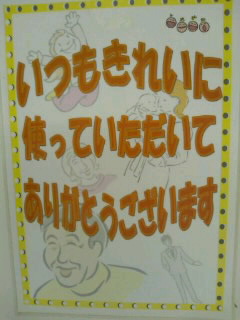 いつもきれいに
使っていただいて
ありがとうございます